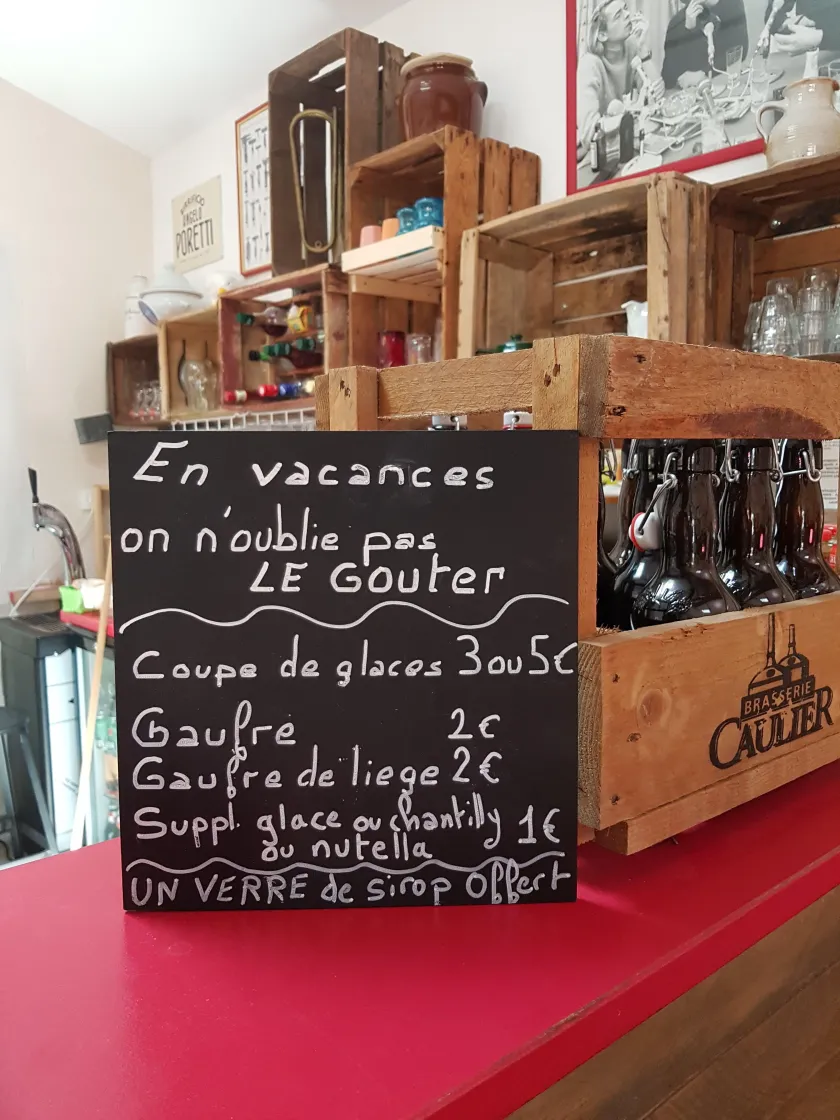 BIRRIFICIO
ANGELO
PORETTI
En vacances
on n'oublie pas
LE Gouter
Coupe de glaces 3ou5€
Gaufre 2€
Gaufre de liege 2€
Suppl. glace ou chantilly 1€
ou nutella
UN VERRE de sirop Offert
BRASSERIE
CAULIER